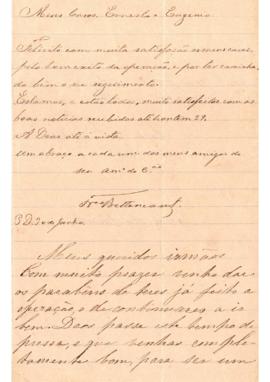 Meus Caros. Ernesto e Eugenio
Felicito com muita satisfação
pelo bom exito da operação, e por ter caminha
do bem o seu seguimento.
Estamos, e estão todos, muito satisfeitos com as
boas noticias recebidas até hontem 29.
A Deos até á vista
um abraço a cada um dos meus amigos do
seu am.º do C.
Bettencourt
P.D. 30 de Junho
Meus queridos irmãos
Com muito prazer venho dar
os parabens de teres já feito a
operação, e de continuares a ir
bem. Deos passe este tempo de
pressa, e que venhas comple
tamente bom, para ser um